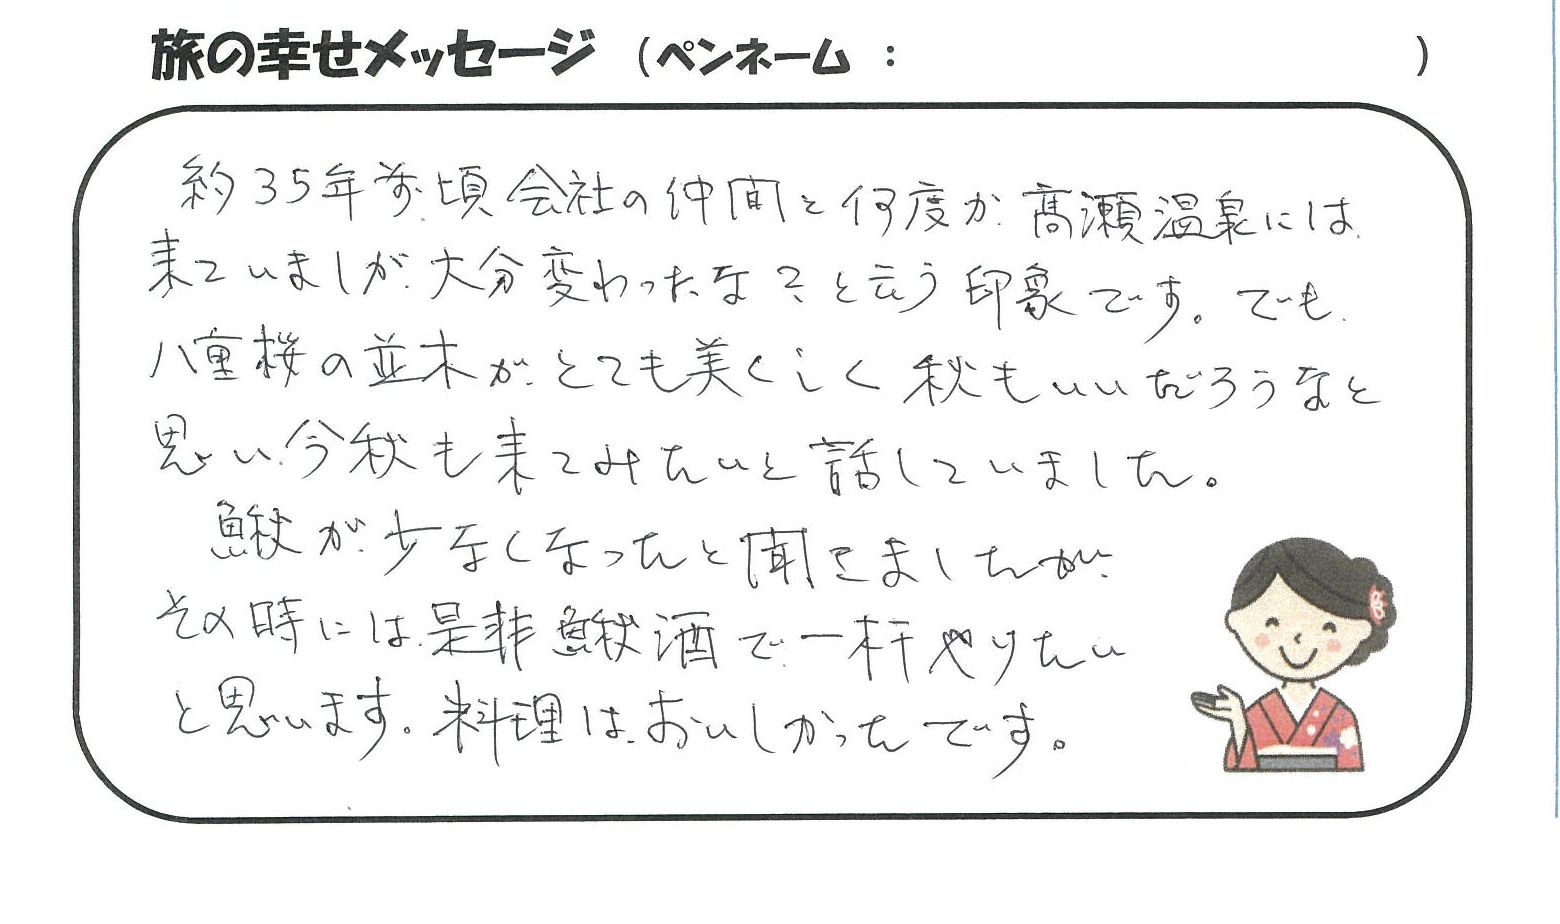 旅の幸せメッセージ (ペンネーム : )
約35年前頃会社の仲間と何度か髙瀬温泉には
来ていましが大分変わったな?と云う印象です。でも
八重桜の並木がとても美くしく秋もいいだろうなと
思い今秋も来てみたいと話していました。
鰍が少なくなったと聞きましたが
その時には是非鰍酒で一杯やりたい
と思います。料理はおいしかったです。